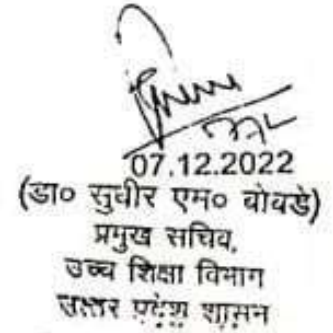 07.12.2022
(डा० सुधीर एम० बोबडे)
प्रमुख सचिव,
उच्च शिक्षा विभाग
उत्तर प्रदेश शासन